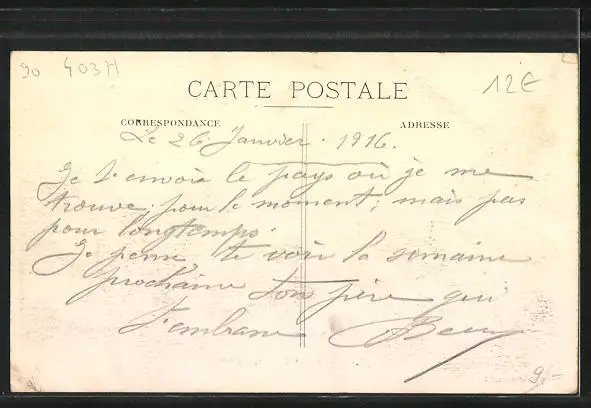 90 403H
12€
CARTE POSTALE
CORRESPONDANCE
ADRESSE
Le 26 Janvier. 1916.
Je t'envoie le pays où je me
trouve, pour le moment; mais pas
pour longtemps.
Je pense te voir la semaine
prochaine ton père qui
t'embrasse
9.-